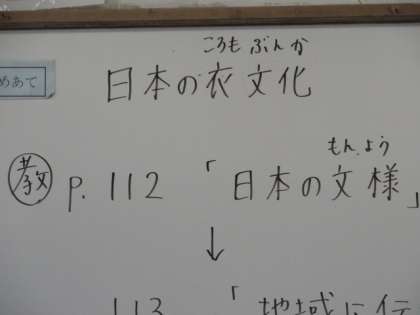 ころもぶんか
めあて
日本の衣文化
もんよう
教 p.112 「日本の文様」
↓
113 「地域に伝